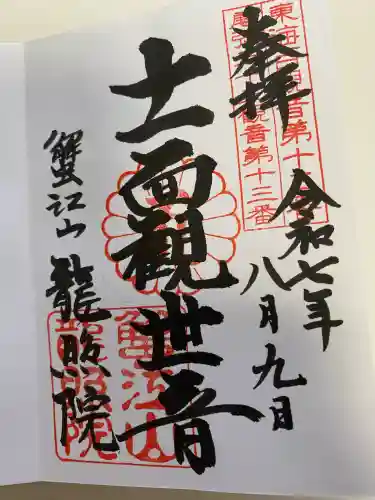 奉拝
令和七年
八月九日
十一面観世音
蟹江山
龍照院
観音第十三番
蟹江山